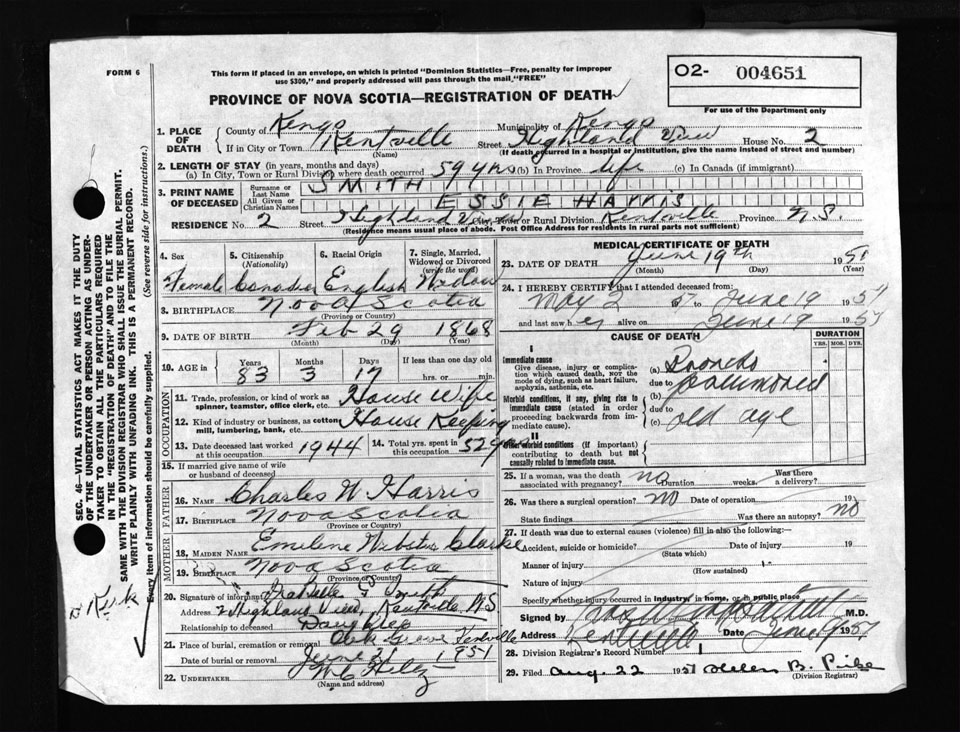 FORM 6
This form if placed in an envelope, on which is printed "Dominion Statistics—Free, penalty for improper use $300," and properly addressed will pass through the mail, "FREE"
O2- 004651
For use of the Department only
PROVINCE OF NOVA SCOTIA—REGISTRATION OF DEATH
1. PLACE OF DEATH County of Kings Municipality of Kings
If in City or Town Kentville (Name) Street Highland View House No. 2
(If death occurred in a hospital or institution, give the name instead of street and number)
2. LENGTH OF STAY (in years, months and days)
(a) In City, Town or Rural Division where death occurred 59 yrs (b) In Province life (c) In Canada (if immigrant)
3. PRINT NAME OF DECEASED Surname or Last Name SMITH
All Given or Christian Names ESSIE HARRIS
RESIDENCE No. 2 Street Highland View City, Town or Rural Division Kentville Province N.S.
(Residence means usual place of abode. Post Office Address for residents in rural parts not sufficient)
4. Sex 5. Citizenship (Nationality) 6. Racial Origin 7. Single, Married, Widowed or Divorced (write the word)
Female Canadian English Widow
8. BIRTHPLACE Nova Scotia
(Province or Country)
9. DATE OF BIRTH Feb 29 1868
(Month) (Day) (Year)
10. AGE in Years Months Days If less than one day old
83 3 17 hrs. or min.
OCCUPATION
11. Trade, profession, or kind of work as spinner, teamster, office clerk, etc. House Wife
12. Kind of industry or business, as cotton mill, lumbering, bank, etc. House Keeping
13. Date deceased last worked at this occupation 1944 14. Total yrs. spent in this occupation 52 yrs
15. If married give name of wife or husband of deceased
FATHER
16. NAME Charles W Harris
17. BIRTHPLACE Nova Scotia
(Province or Country)
MOTHER
18. MAIDEN NAME Emeline Webster Clarke
19. BIRTHPLACE Nova Scotia
(Province or Country)
20. Signature of informant Smith
Address 2 Highland View, Kentville, N.S
Relationship to deceased Daughter
21. Place of burial, cremation or removal Oak Grove Kentville
Date of burial or removal June 21 1951
22. UNDERTAKER
(Name and address)
MEDICAL CERTIFICATE OF DEATH
23. DATE OF DEATH June 19th 1951
(Month) (Day) (Year)
24. I HEREBY CERTIFY that I attended deceased from:
May 2 1951 to June 19 1951
and last saw her alive on June 19 1951
CAUSE OF DEATH DURATION
YRS. MOS. DYS.
I
Immediate cause
Give disease, injury or complication which caused death, NOT the mode of dying, such as heart failure, asphyxia, asthenia, etc.
(a) Broncho
due to
Morbid conditions, if any, giving rise to immediate cause (stated in order proceeding backwards from immediate cause).
(b)
due to
(c) old age
II
Other morbid conditions (if important) contributing to death but not causally related to immediate cause.
25. If a woman, was the death associated with pregnancy? no Duration weeks. Was there a delivery?
26. Was there a surgical operation? no Date of operation 19
State findings Was there an autopsy? no
27. If death was due to external causes (violence) fill in also the following:—
Accident, suicide or homicide? Date of injury 19
(State which)
Manner of injury
(How sustained)
Nature of injury
Specify whether injury occurred in industry, in home, or in public place
Signed by M.D.
Address Kentville Date June 19 1951
28. Division Registrar's Record Number
29. Filed Aug. 22 1951 Helen B.
(Division Registrar)
SEC. 46—VITAL STATISTICS ACT MAKES IT THE DUTY OF THE UNDERTAKER OR PERSON ACTING AS UNDERTAKER TO OBTAIN ALL THE PARTICULARS REQUIRED IN THE "REGISTRATION OF DEATH" AND TO FILE THE SAME WITH THE DIVISION REGISTRAR WHO SHALL ISSUE THE BURIAL PERMIT.
WRITE PLAINLY WITH UNFADING INK. THIS IS A PERMANENT RECORD.
Every item of information should be carefully supplied. (See reverse side for instructions.)